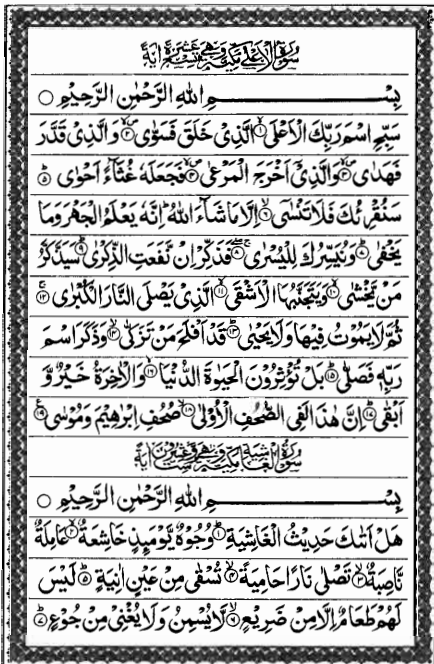 سورة الاعلى مكية وهى تسع عشرة اية
بِسْمِ اللهِ الرَّحْمٰنِ الرَّحِيْمِ
سَبِّحِ اسْمَ رَبِّكَ الْاَعْلَى ۙ﴿۱﴾ الَّذِىْ خَلَقَ فَسَوّٰى ۙ﴿۲﴾ وَالَّذِىْ قَدَّرَ
فَهَدٰى ۙ﴿۳﴾ وَالَّذِىْۤ اَخْرَجَ الْمَرْعٰى ۙ﴿۴﴾ فَجَعَلَهٗ غُثَآءً اَحْوٰى ؕ﴿۵﴾
سَنُقْرِئُكَ فَلَا تَنْسٰٓى ۙ﴿۶﴾ اِلَّا مَا شَآءَ اللهُ ؕ اِنَّهٗ يَعْلَمُ الْجَهْرَ وَمَا
يَخْفٰى ؕ﴿۷﴾ وَنُيَسِّرُكَ لِلْيُسْرٰى ۚ﴿۸﴾ فَذَكِّرْ اِنْ نَّفَعَتِ الذِّكْرٰى ؕ﴿۹﴾ سَيَذَّكَّرُ
مَنْ يَّخْشٰى ۙ﴿۱۰﴾ وَيَتَجَنَّبُهَا الْاَشْقَى ۙ﴿۱۱﴾ الَّذِىْ يَصْلَى النَّارَ الْكُبْرٰى ۚ﴿۱۲﴾
ثُمَّ لَا يَمُوْتُ فِيْهَا وَلَا يَحْيٰى ؕ﴿۱۳﴾ قَدْ اَفْلَحَ مَنْ تَزَكّٰى ۙ﴿۱۴﴾ وَذَكَرَ اسْمَ
رَبِّهٖ فَصَلّٰى ؕ﴿۱۵﴾ بَلْ تُؤْثِرُوْنَ الْحَيٰوةَ الدُّنْيَا ۖ﴿۱۶﴾ وَالْاٰخِرَةُ خَيْرٌ وَّ
اَبْقٰى ؕ﴿۱۷﴾ اِنَّ هٰذَا لَفِى الصُّحُفِ الْاُوْلٰى ۙ﴿۱۸﴾ صُحُفِ اِبْرٰهِيْمَ وَمُوْسٰى ﴿۱۹﴾
سورة الغاشية مكية وهى ست وعشرون اية
بِسْمِ اللهِ الرَّحْمٰنِ الرَّحِيْمِ
هَلْ اَتٰىكَ حَدِيْثُ الْغَاشِيَةِ ؕ﴿۱﴾ وُجُوْهٌ يَّوْمَئِذٍ خَاشِعَةٌ ۙ﴿۲﴾ عَامِلَةٌ
نَّاصِبَةٌ ۙ﴿۳﴾ تَصْلٰى نَارًا حَامِيَةً ۙ﴿۴﴾ تُسْقٰى مِنْ عَيْنٍ اٰنِيَةٍ ؕ﴿۵﴾ لَيْسَ
لَهُمْ طَعَامٌ اِلَّا مِنْ ضَرِيْعٍ ۙ﴿۶﴾ لَّا يُسْمِنُ وَلَا يُغْنِىْ مِنْ جُوْعٍ ؕ﴿۷﴾